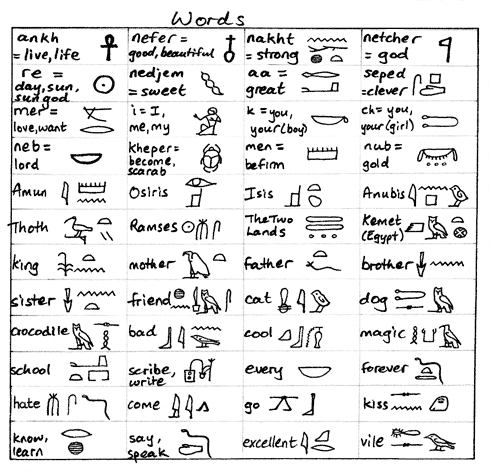 Words
ankh
= live, life
nefer =
good, beautiful
nakht
= strong
netcher
= god
re =
day, sun,
sun god
nedjem
= sweet
aa =
great
seped
=clever
mer =
love, want
i = I,
me, my
k = you,
your (boy)
ch = you,
your (girl)
neb =
lord
kheper =
become,
scarab
men =
be firm
nub =
gold
Amun
Osiris
Isis
Anubis
Thoth
Ramses
The Two
Lands
Kemet
(Egypt)
king
mother
father
brother
sister
friend
cat
dog
crocodile
bad
cool
magic
school
scribe,
write
every
forever
hate
come
go
kiss
know,
learn
say,
speak
excellent
vile